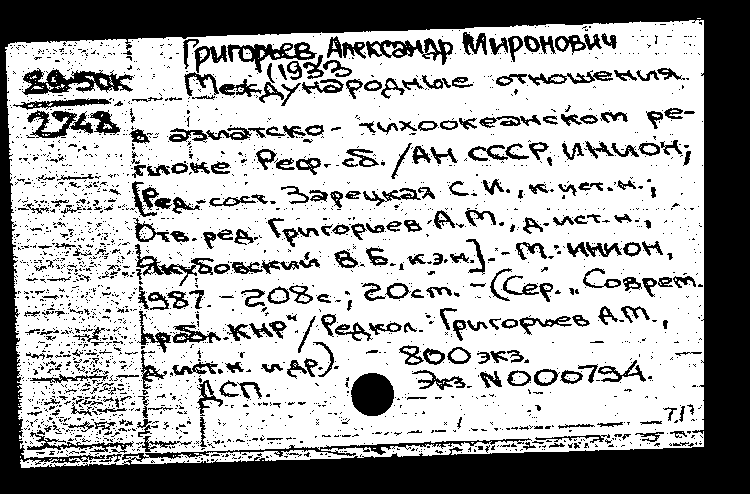 Григорьев, Александр Миронович
(1933
89-50К Международные отношения
2748 в азиатско-тихоокеанском ре-
гионе: Реф. сб. /АН СССР, ИНИОН;
[Ред.-сост. Зарецкая С. И., к.ист.н.;
Отв. ред. Григорьев А.М., д.ист.н.,
Якубовский В.Б., к.э.н.]. - М.: ИНИОН,
1987. - 208с.; 20см. - (Сер. „Соврем.
пробл. КНР" / Редкол.: Григорьев А.М.,
д.ист.н. и др.). 800 экз.
ДСП. Экз. N 000794.